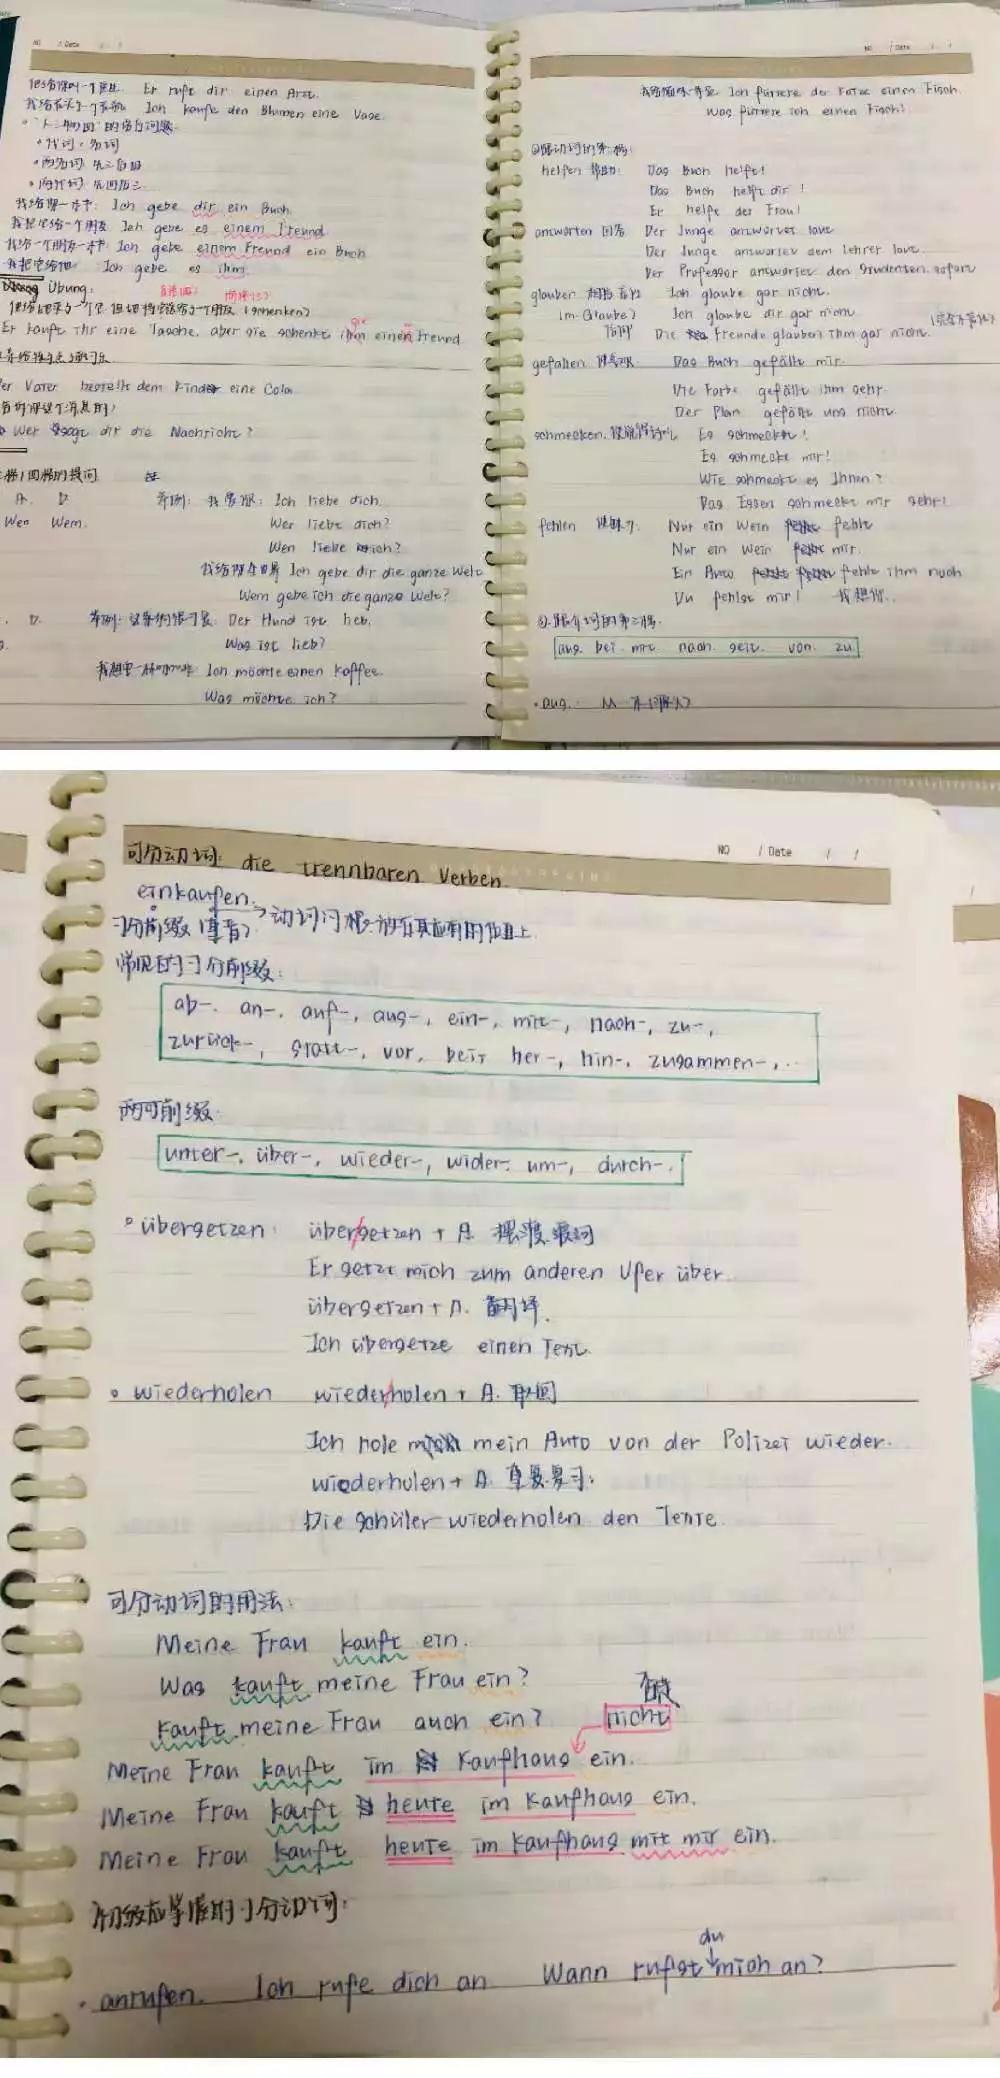 NO / Date / /
他给你叫一个医生. Er ruft dir einen Arzt.
我给花买了一个花瓶 Ich kaufe den Blumen eine Vase.
"人三物四"的语序问题:
代词 > 名词
两名词: 先三后四
两代词: 先四后三
我给你一本书: Ich gebe dir ein Buch.
我把它给一个朋友 Ich gebe es einem Freund.
我给一个朋友一本书: Ich gebe einem Freund ein Buch
我把它给他: Ich gebe es ihm.
Übung:
(schenken)
Er kauft ihr eine Tasche, aber sie schenkt ihm einen Freund
Der Vater bestellt dem Kinder eine Cola.
Wer sagt dir die Nachricht?
三格/四格的提问
A. D. 举例: 我爱你: Ich liebe dich.
Wen Wem. Wer liebt dich?
Wen liebe ich?
我给你全世界 Ich gebe dir die ganze Welt
Wem gebe ich die ganze Welt?
D. 举例: 这条狗很可爱: Der Hund ist lieb.
Was ist lieb?
我想要一杯咖啡: Ich möchte einen Kaffee.
Was möchte ich?
NO / Date / /
Ich füttere der Katze einen Fisch.
Was füttere ich einen Fisch?
②跟动词的第三格:
helfen 帮助: Das Buch helft!
Das Buch helft dir!
Er helfe der Frau!
antworten 回答 Der Junge antwortet laut
Der Junge antwortet dem Lehrer laut
Der Professor antwortet den Studenten sofort
glauben 相信 Ich glaube gar nicht.
Ich glaube dir gar nicht.
Die Freunde glauben ihm gar nicht.
gefallen 使喜欢 Das Buch gefällt mir.
Die Farbe gefällt ihm sehr.
Der Plan gefällt uns nicht.
schmecken. 使觉得好吃 Es schmeckt!
Es schmeckt mir!
Wie schmeckt es Ihnen?
Das Essen schmeckt mir sehr!
fehlen 使缺少 Nur ein Wein fehlt
Nur ein Wein fehlt mir.
Ein Auto fehlt ihm noch
Du fehlst mir! 我想你.
③.跟介词的第三格.
aus. bei. mit. nach. seit. von. zu
aus.
NO / Date / /
可分动词: die trennbaren Verben.
einkaufen.
可分前缀(重音) 动词词根:放在其应有的位置上
常见的可分前缀:
ab-, an-, auf-, aus-, ein-, mit-, nach-, zu-,
zurück-, statt-, vor, bei, her-, hin-, zusammen-, ...
两可前缀:
unter-, über-, wieder-, wider-, um-, durch-.
übersetzen: über/setzen + A. 摆渡.
Er setzt mich zum anderen Ufer über.
übersetzen + A. 翻译.
Ich übersetze einen Text.
wiederholen wieder/holen + A. 取回
Ich hole mein Auto von der Polizei wieder.
wiederholen + A. 重复.复习.
Die Schüler wiederholen den Texte.
可分动词的用法:
Meine Frau kauft ein.
Was kauft meine Frau ein?
Kauft meine Frau auch ein? nicht
Meine Frau kauft im Kaufhaus ein.
Meine Frau kauft heute im Kaufhaus ein.
Meine Frau kauft heute im Kaufhaus mit mir ein.
初级应掌握的可分动词:
du
anrufen. Ich rufe dich an. Wann rufst mich an?